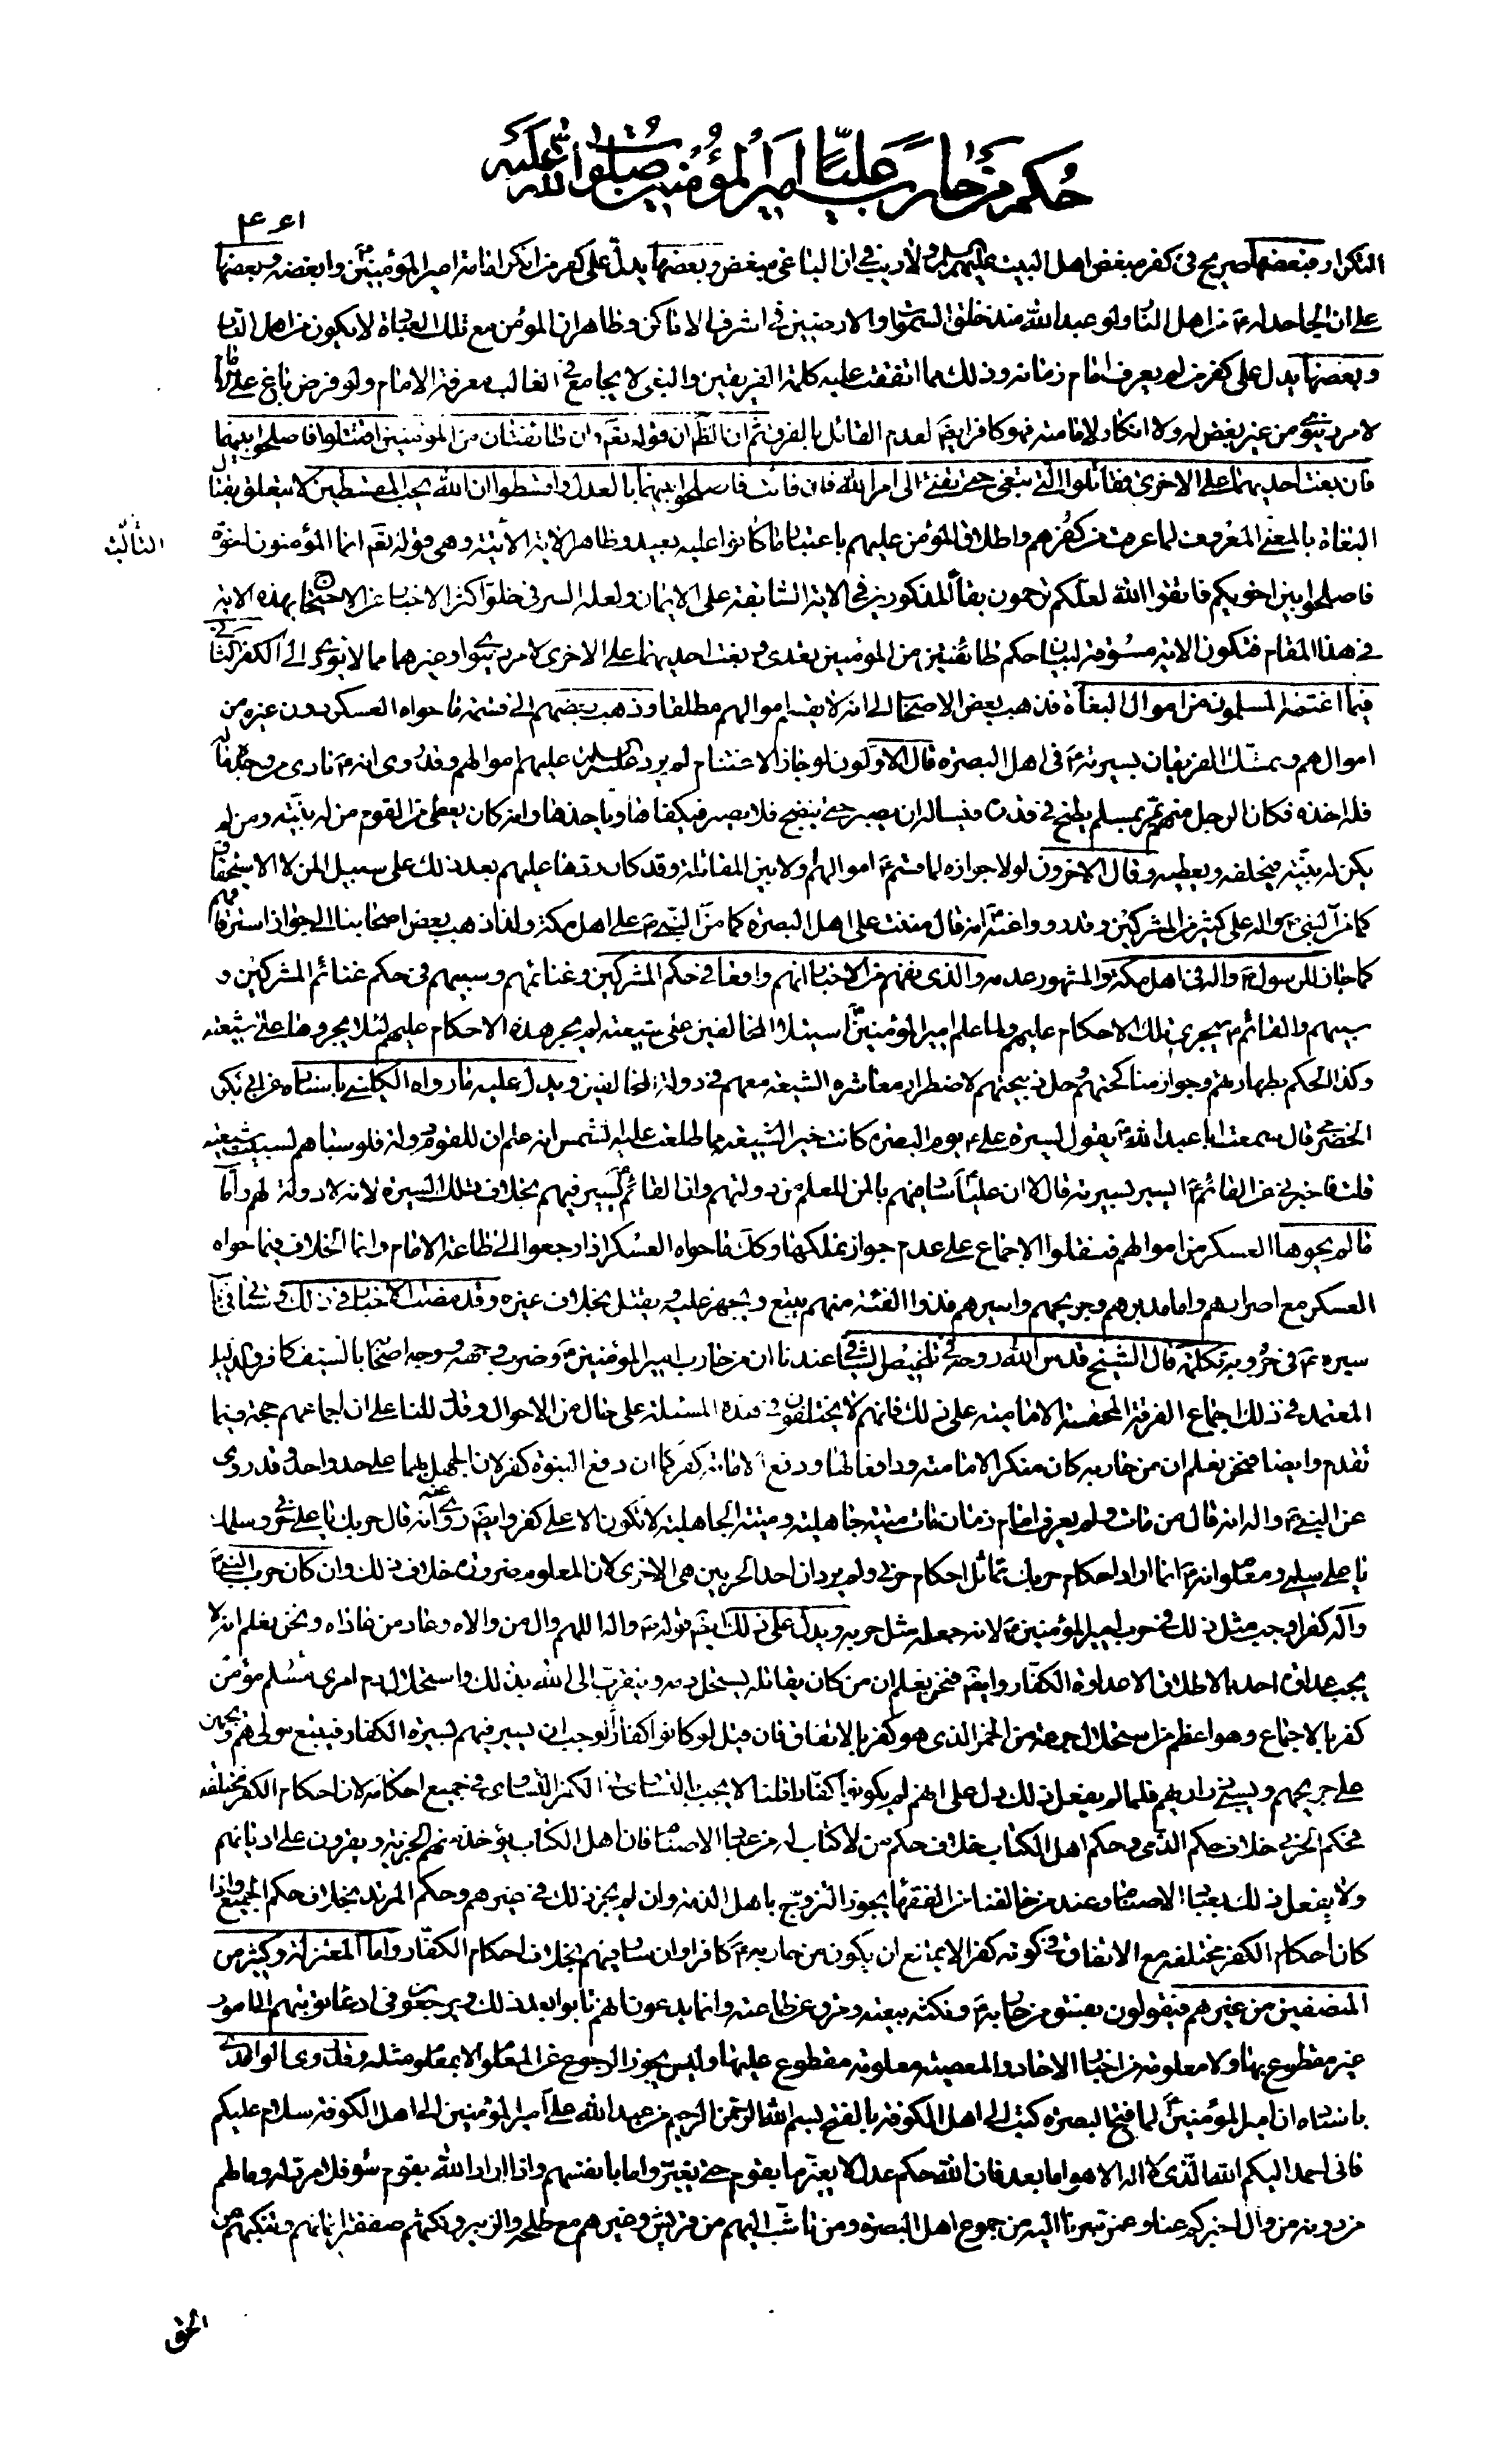 حكم من حارب عليا امير المؤمنين صلوات الله عليه
٤٤١
التكرار وبعضها صريح في كفر مبغض اهل البيت عليهم السلم ولا ريب في ان الباغي مبغض وبعضها يدل على كفر من انكر امامة امير المؤمنين وابغضه وبعضها
على ان الجاحد له ع من اهل النار ولو عبد الله منذ خلق السموات والارضين في اشرف الاماكن وظاهر ان المؤمن مع تلك العبادة لا يكون من اهل النار
وبعضها يدل على كفر من لم يعرف امام زمانه وذلك مما اتفقت عليه كلمة الفريقين والبغي لا يجامع في الغالب معرفة الامام ولو فرض باغ على الامام
لامر دنيوي من غير بغض له ولا انكار لامامته فهو كافر ايضا لعدم القائل بالفرق ثم ان الظ ان قوله تعم وان طائفتان من المؤمنين اقتتلوا فاصلحوا بينهما
فان بغت احديهما على الاخرى فقاتلوا التي تبغي حتى تفئ الى امر الله فان فائت فاصلحوا بينهما بالعدل واقسطوا ان الله يحب المقسطين لا يتعلق بقتال
البغاة بالمعنى المعروف لما عرفت من كفرهم واطلاق المؤمن عليهم باعتبار ما كانوا عليه بعيد وظاهر الاية الاتية وهي قوله تعم انما المؤمنون اخوة
فاصلحوا بين اخويكم فاتقوا الله لعلكم ترحمون بقاء المذكورين في الاية السابقة على الايمان ولعله السر في خلو اكثر الاخبار عن الاحتجاج بهذه الاية
في هذا المقام فتكون الاية مسوقة لبيان حكم طائفتين من المؤمنين تعدى وبغت احديهما على الاخرى لامر دنيوي او غيرهما مما لا يؤدي الى الكفر الثاني
الثالث
فيما اغتنمه المسلمون من اموال البغاة فذهب بعض الاصحاب الى انه لا يقسم اموالهم مطلقا وذهب بعضهم الى قسمة ما حواه العسكر دون غيره من
اموالهم وتمسك الفريقان بسيرته ع في اهل البصرة قال الاولون لو جاز الاغتنام لم يرد عليه السلم عليهم اموالهم وقد روي انه ع نادى من وجد ماله
فله اخذه فكان الرجل منهم يمر بمسلم يطبخ في قدره فيساله ان يصبر حتى ينضج فلا يصبر فيكفاها وياخذها وانه كان يعطي من القوم من له بينة ومن لم
يكن له بينة فيحلفه ويعطيه وقال الاخرون لولا جوازه لما قسم ع اموالهم اولا بين المقاتلة وقد كان ردها عليهم بعد ذلك على سبيل المن لا الاستحقاق
كما من النبي ص واله على كثير من المشركين وقد رووا عنه ع انه قال مننت على اهل البصرة كما من النبي ص على اهل مكة ولذا ذهب بعض اصحابنا الى جواز استرقاقهم
كما جاز للرسول ص واله في اهل مكة والمشهور عدمه والذي نفهم من الاخبار انهم واقعا في حكم المشركين وغنائمهم وسبيهم في حكم غنائم المشركين و
سبيهم والقائم ع يجري تلك الاحكام عليهم ولما علم امير المؤمنين ع استيلاء المخالفين على شيعته لم يجر هذه الاحكام عليهم لئلا يجروها على شيعته
وكذا الحكم بطهارتهم وجواز مناكحتهم وحل ذبيحتهم لاضطرار معاشرة الشيعة معهم في دولة المخالفين ويدل عليه ما رواه الكليني باسناده عن ابي بكر
الحضرمي قال سمعت ابا عبد الله ع يقول لسيرة علي ع يوم البصرة كانت خيرا لشيعته مما طلعت عليه الشمس انه علم ان للقوم دولة فلو سباهم لسبيت شيعته
قلت فاخبرني عن القائم ع ايسير بسيرته قال لا ان عليا ع سار فيهم بالمن للعلم من دولتهم وان القائم ع يسير فيهم بخلاف تلك السيرة لانه لا دولة لهم واما
ما لم يحوها العسكر من اموالهم فنقلوا الاجماع على عدم جواز تملكها وكذلك ما حواه العسكر اذا رجعوا الى طاعة الامام وانما الخلاف فيما حواه
العسكر مع اصرارهم واما مدبرهم وجريحهم واسيرهم فذوا الفئة منهم يتبع ويجهز عليه ويقتل بخلاف غيره وقد مضت الاخبار في ذلك وسياتي في باب
سيره ع في حروبه تكملة قال الشيخ قدس الله روحه في تلخيص الشافي عندنا ان من حارب امير المؤمنين ع وضرب وجهه ووجه اصحابه بالسيف كافر والدليل
المعتمد في ذلك اجماع الفرقة المحقة الامامية على ذلك فانهم لا يختلفون في هذه المسئلة على حال من الاحوال وقد دللنا على ان اجماعهم حجة فيما
تقدم وايضا فنحن نعلم ان من حاربه كان منكرا لامامته ودافعا لها ودفع الامامة كفر كما ان دفع النبوة كفر لان الجهل بهما على حد واحد وقد روي
عن النبي ص واله انه قال من مات ولم يعرف امام زمانه مات ميتة جاهلية وميتة الجاهلية لا تكون الا على كفر وايضا روي عنه انه قال حربك يا علي حربي وسلمك
يا علي سلمي ومعلوم انه ع انما اراد احكام حربك تماثل احكام حربي ولم يرد ان احد الحربين هي الاخرى لان المعلوم ضرورة خلاف ذلك وان كان حرب النبي ص
واله كفرا وجب مثل ذلك في حرب امير المؤمنين ع لانه جعله مثل حربه ويدل على ذلك ايضا قوله ص واله اللهم وال من والاه وعاد من عاداه ونحن نعلم انه لا
يجب عداوة احد بالاطلاق الا عداوة الكفار وايضا فنحن نعلم ان من كان يقاتله يستحل دمه ويتقرب الى الله بذلك واستحلال دم امرئ مسلم مؤمن
كفر بالاجماع وهو اعظم من استحلال جرعة من الخمر الذي هو كفر بالاتفاق فان قيل لو كانوا كفارا لوجب ان يسير فيهم بسيرة الكفار فيتبع موليهم ويجهز
على جريحهم ويسبي ذراريهم فلما لم يفعل ذلك دل على انهم لم يكونوا كفارا قلنا لا يجب بالتساوي في الكفر التساوي في جميع احكامه لان احكام الكفر مختلفة
فحكم الحربي خلاف حكم الذمي وحكم اهل الكتاب خلاف حكم من لا كتاب له من عباد الاصنام فان اهل الكتاب يؤخذ منهم الجزية ويقرون على اديانهم
ولا يفعل ذلك بعباد الاصنام وعند من خالفنا من الفقهاء يجوز التزويج باهل الذمة وان لم يجز ذلك في غيرهم وحكم المرتد بخلاف حكم الجميع واذا
كان احكام الكفر مختلفة مع الاتفاق في كونه كفرا لا يمتنع ان يكون من حاربه ع كافرا وان سار فيهم بخلاف احكام الكفار واما المعتزلة وكثير من
المنصفين من غيرهم فيقولون بفسق من حاربه ع ونكث بيعته ومرق عن طاعته وانما يدعون انهم تابوا بعد ذلك ويرجعون في ادعاء توبتهم الى امور
غير مقطوع بها ولا معلومة من اخبار الاحاد والمعصية معلومة مقطوع عليها وليس يجوز الرجوع عن المعلوم الا بمعلوم مثله وقد روى الواقدي
باسناده ان امير المؤمنين ع لما فتح البصرة كتب الى اهل الكوفة بالفتح بسم الله الرحمن الرحيم من عبد الله علي امير المؤمنين الى اهل الكوفة سلام عليكم
فاني احمد اليكم الله الذي لا اله الا هو اما بعد فان الله حكم عدل لا يغير ما بقوم حتى يغيروا ما بانفسهم واذا اراد الله بقوم سوء فلا مرد له وما لهم
من دونه من وال اخبركم عنا وعمن سرنا اليه من جموع اهل البصرة ومن تاشب اليهم من قريش وغيرهم مع طلحة والزبير ونكثهم صفقة ايمانهم وتنكبهم عن
الحق